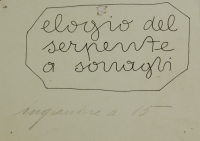 elogio del
serpente
a sonagli
ingrandire a 15